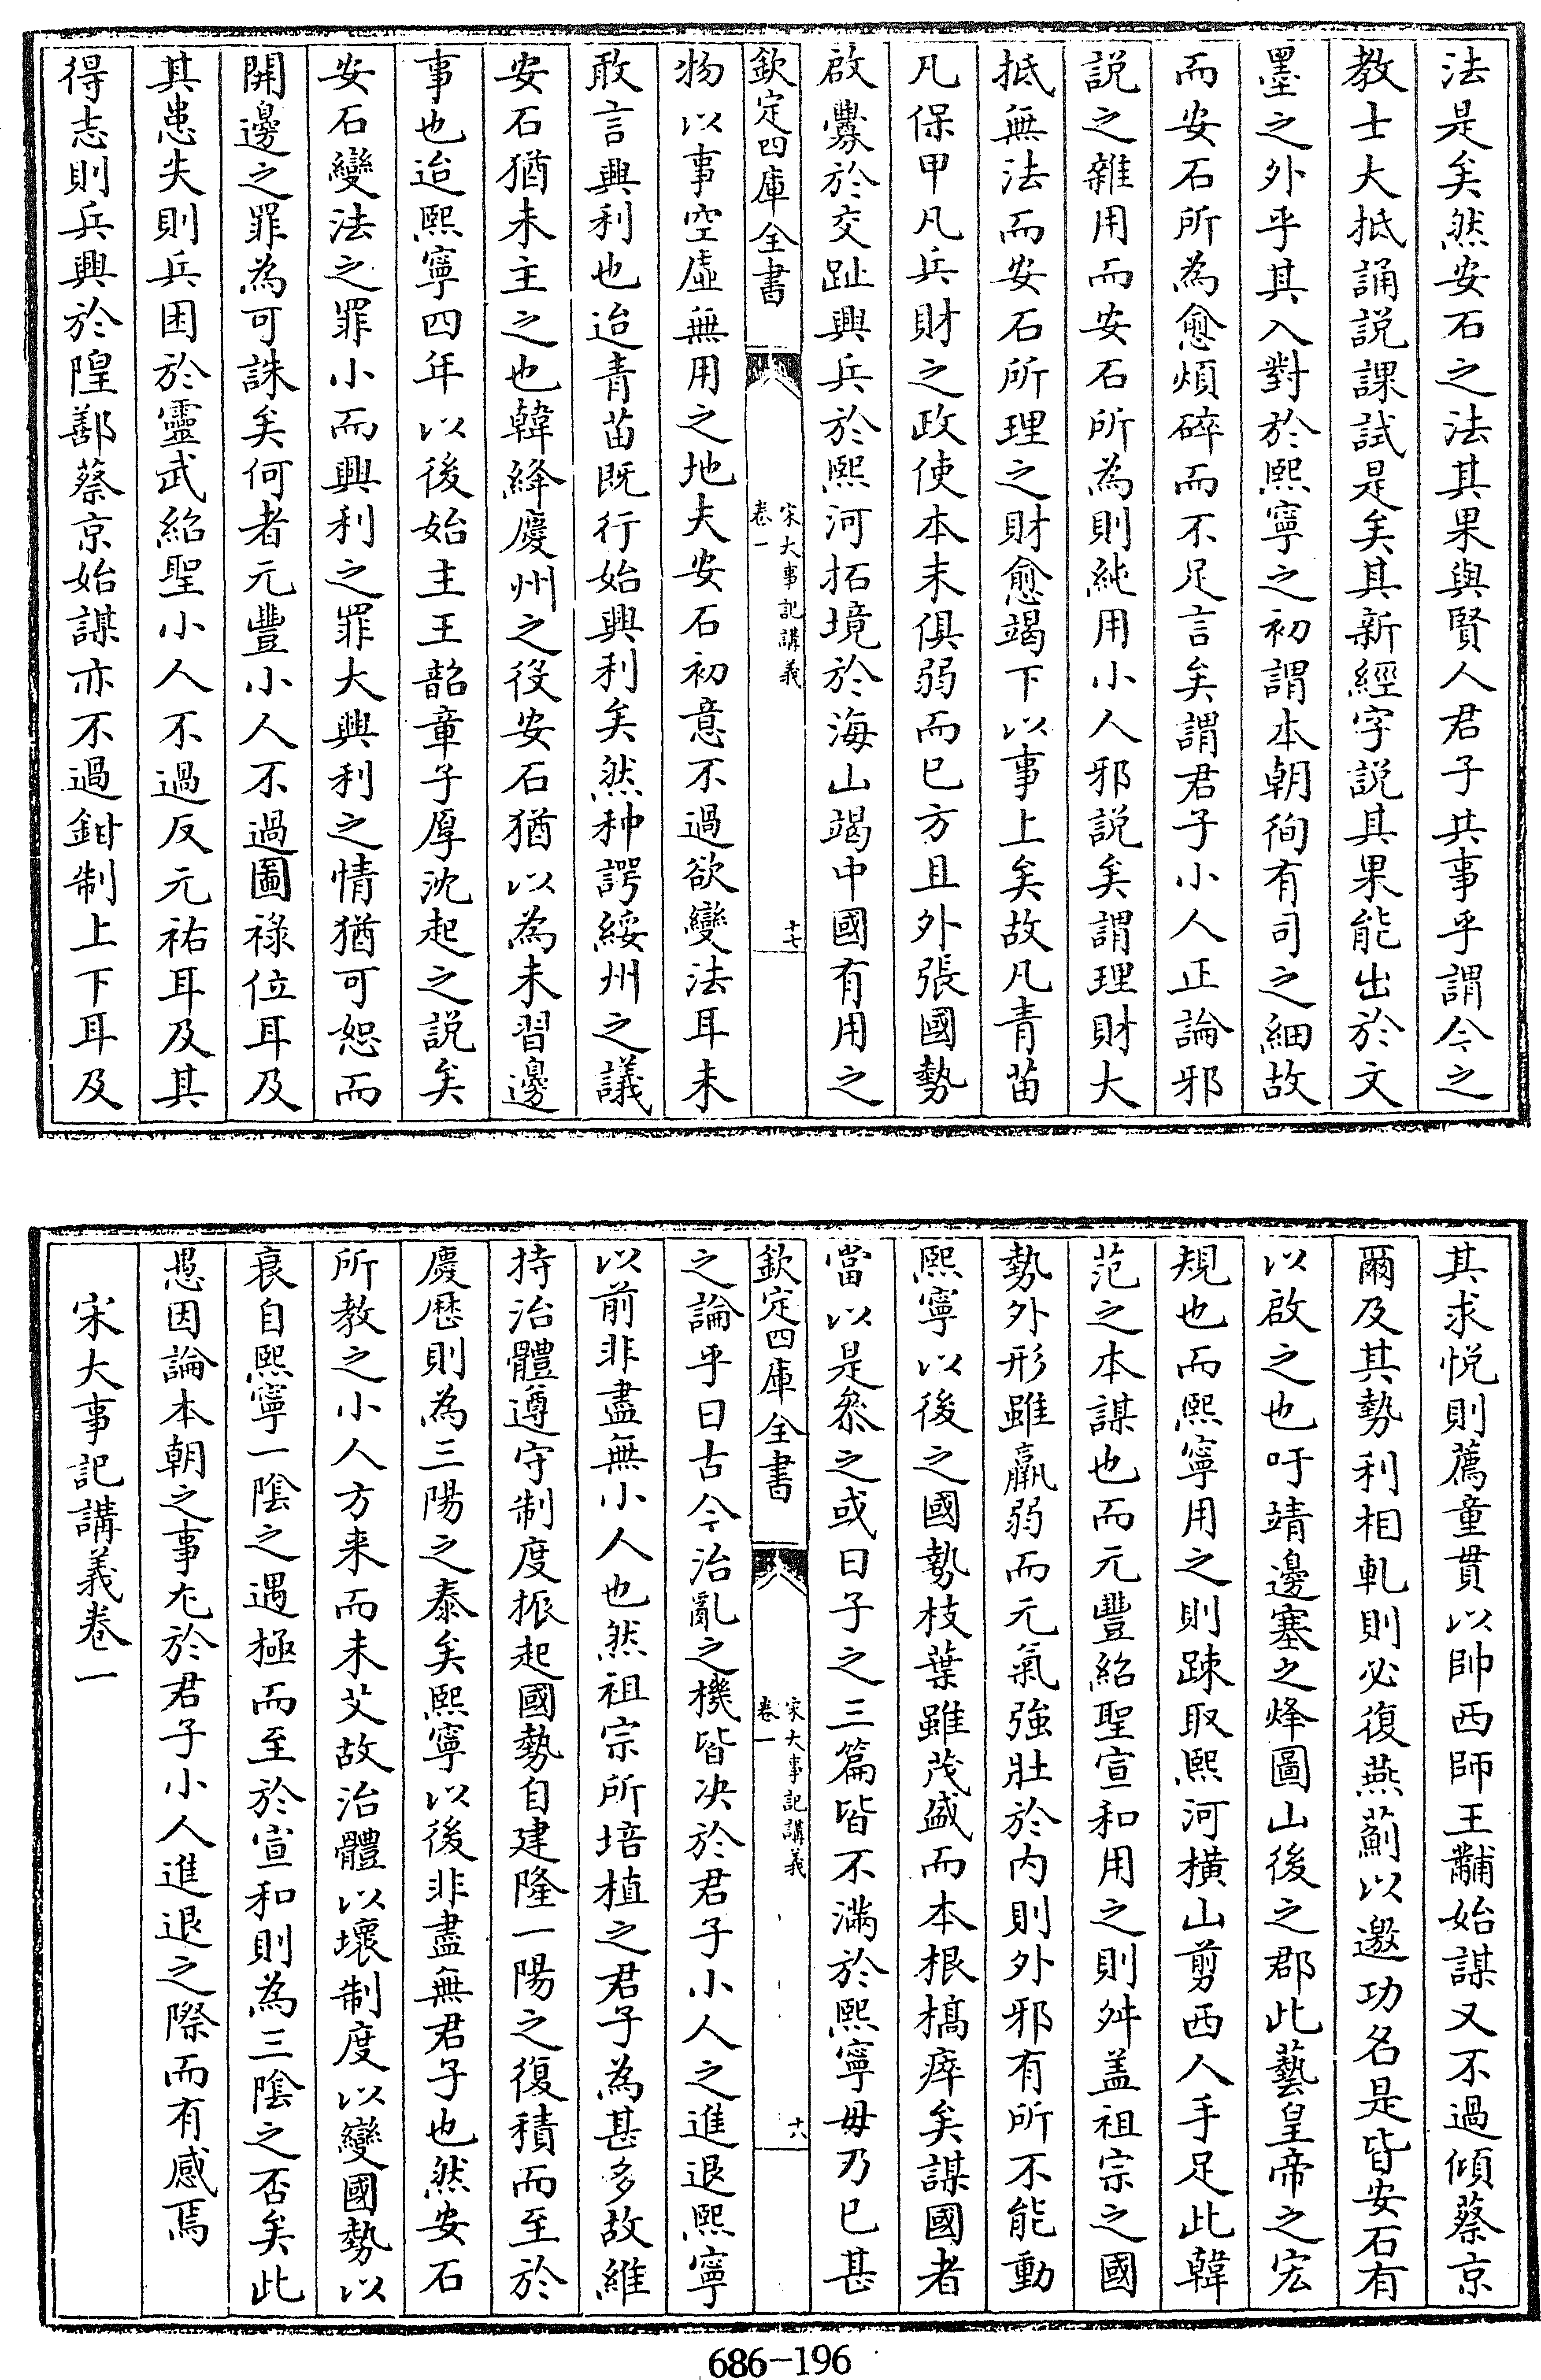 法是矣然安石之法其果與賢人君子共事乎謂今之
教士大抵誦説課試是矣其新經字説其果能出於文
墨之外乎其入對於熙寧之初謂本朝徇有司之細故
而安石所為愈煩碎而不足言矣謂君子小人正論邪
説之雜用而安石所為則純用小人邪説矣謂理財大
抵無法而安石所理之財愈竭下以事上矣故凡青苗
凡保甲凡兵財之政使本末俱弱而已方且外張國勢
啟釁於交趾興兵於熙河拓境於海山竭中國有用之
欽定四庫全書
宋大事記講義
卷一
十七
物以事空虛無用之地夫安石初意不過欲變法耳未
敢言興利也迨青苗既行始興利矣然种諤綏州之議
安石猶未主之也韓絳慶州之役安石猶以為未習邊
事也迨熙寧四年以後始主王韶章子厚沈起之説矣
安石變法之罪小而興利之罪大興利之情猶可恕而
開邊之罪為可誅矣何者元豐小人不過圖祿位耳及
其患失則兵困於靈武紹聖小人不過反元祐耳及其
得志則兵興於隍鄯蔡京始謀亦不過鉗制上下耳及
其求悦則薦童貫以帥西師王黼始謀又不過傾蔡京
爾及其勢利相軋則必復燕薊以邀功名是皆安石有
以啟之也吁靖邊塞之烽圖山後之郡此藝皇帝之宏
規也而熙寧用之則踈取熙河橫山剪西人手足此韓
范之本謀也而元豐紹聖宣和用之則舛盖祖宗之國
勢外形雖羸弱而元氣強壯於内則外邪有所不能動
熙寧以後之國勢枝葉雖茂盛而本根槁瘁矣謀國者
當以是叅之或曰子之三篇皆不滿於熙寧毋乃已甚
欽定四庫全書
宋大事記講義
卷一
十八
之論乎曰古今治亂之機皆决於君子小人之進退熙寧
以前非盡無小人也然祖宗所培植之君子為甚多故維
持治體遵守制度振起國勢自建隆一陽之復積而至於
慶歴則為三陽之泰矣熙寧以後非盡無君子也然安石
所教之小人方来而未艾故治體以壞制度以變國勢以
衰自熙寧一陰之遇極而至於宣和則為三陰之否矣此
愚因論本朝之事尤於君子小人進退之際而有感焉
宋大事記講義卷一
686-196